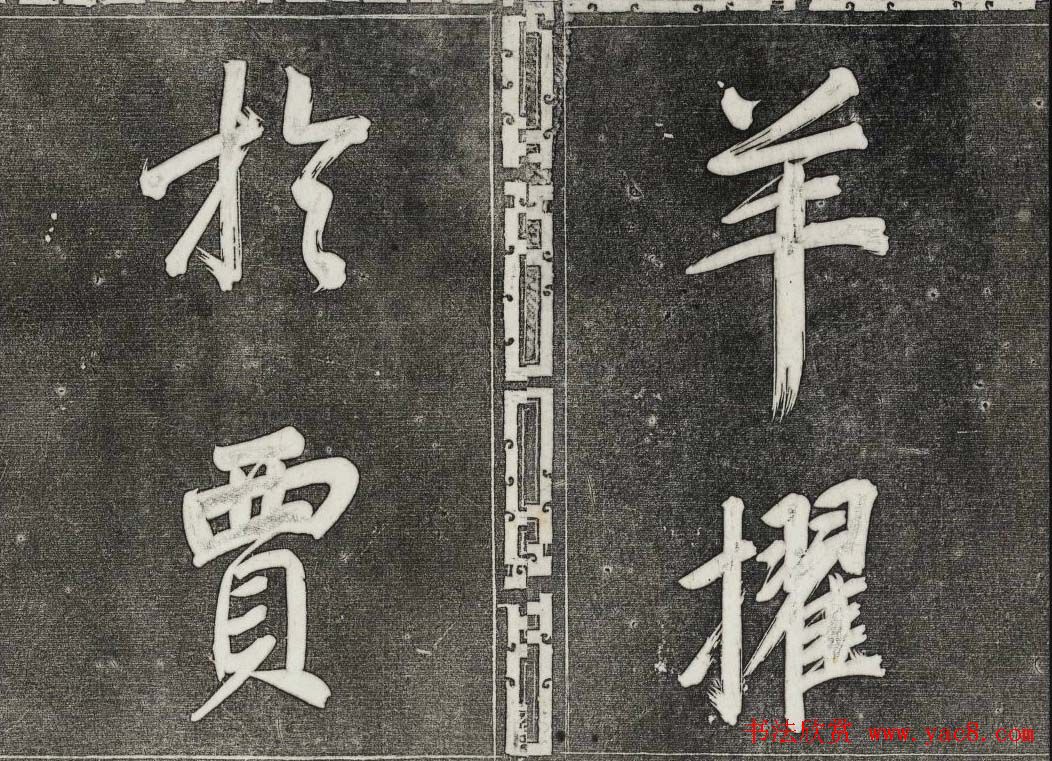 羊擢
於賈
书法欣赏 www.yac8.com